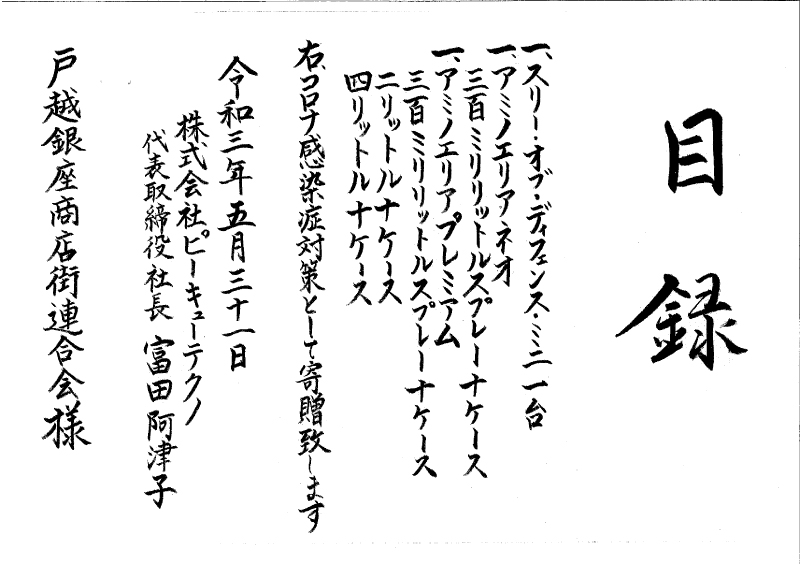 目録
一、スリー・オブ・ディフェンス・ミニ 一台
一、アミノエリアネオ
三百ミリリットルスプレー 十ケース
一、アミノエリアプレミアム
三百ミリリットルスプレー 十ケース
二リットル 十ケース
四リットル 十ケース
右、コロナ感染症対策として寄贈致します
令和三年五月三十一日
株式会社ピーキューテクノ
代表取締役社長 富田阿津子
戸越銀座商店街連合会様